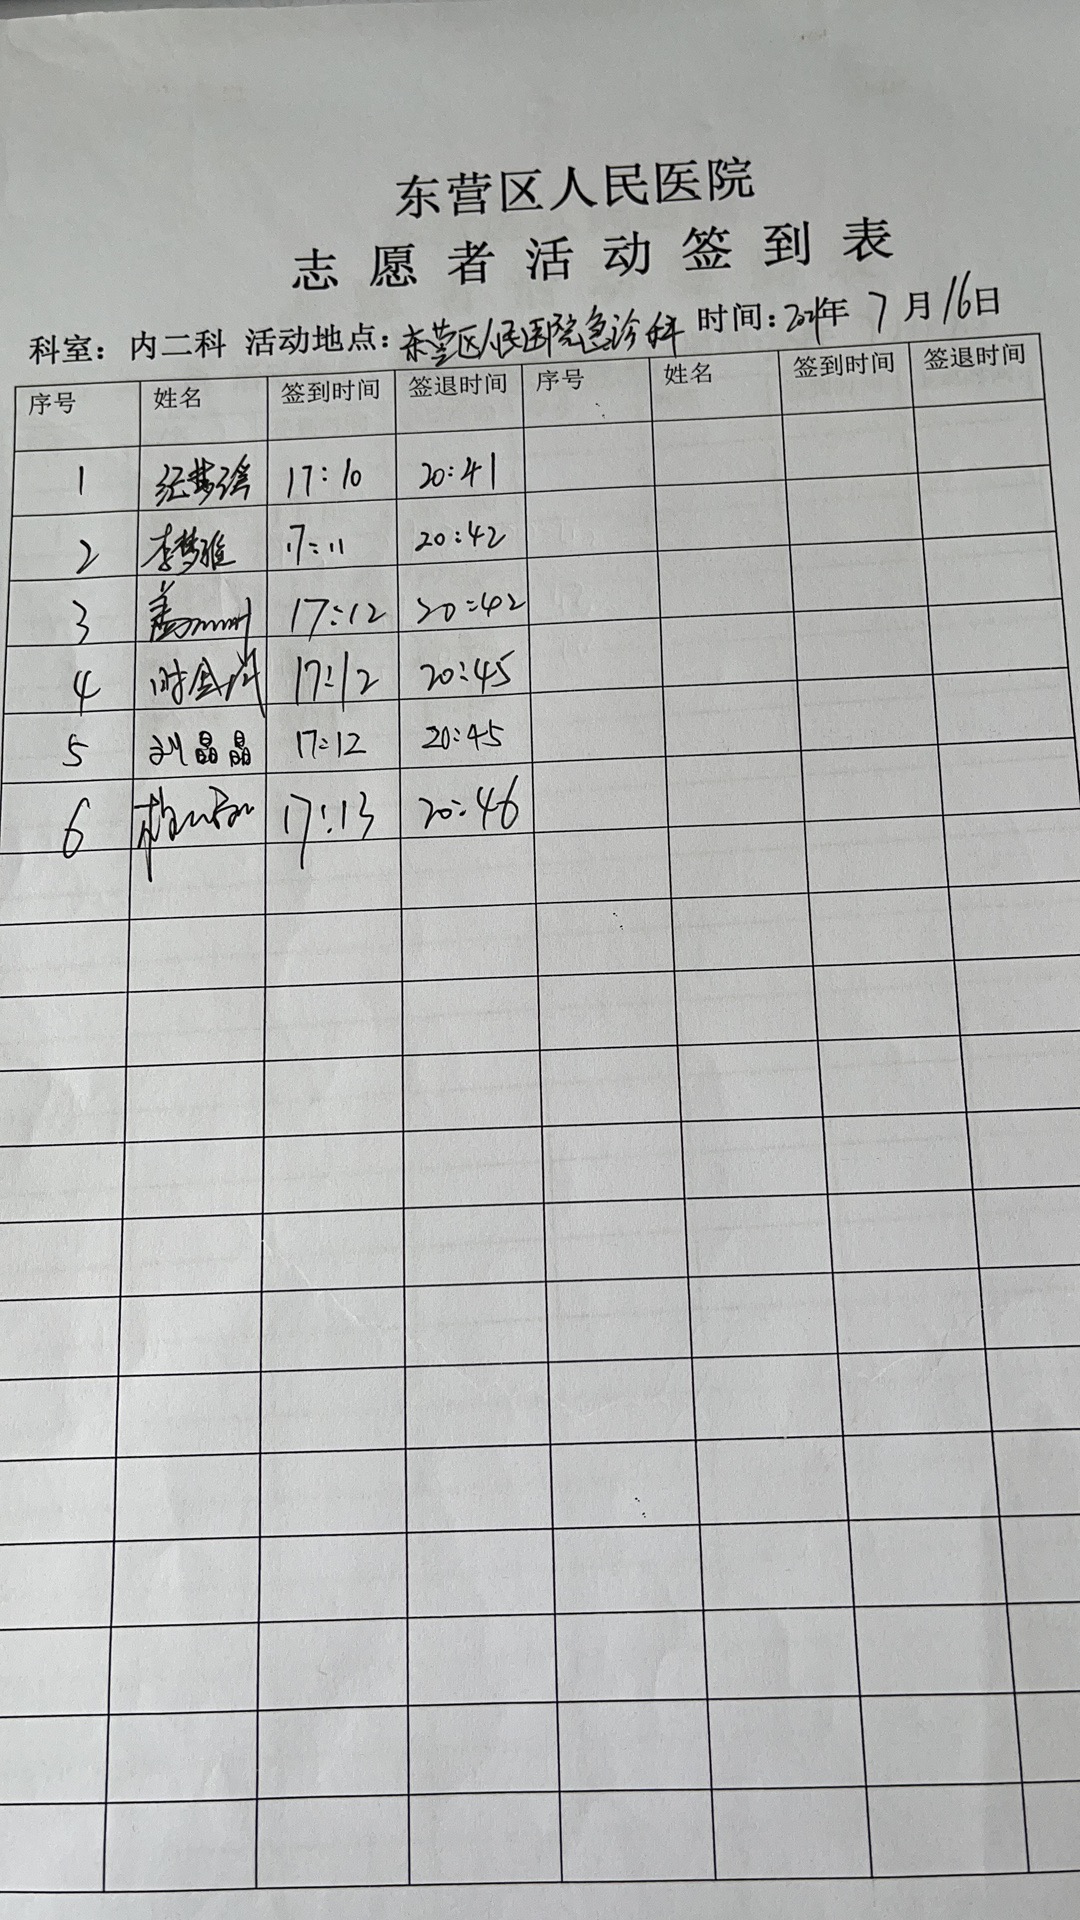 东营区人民医院
志愿者活动签到表
科室：内二科 活动地点：东营区人民医院急诊科 时间：年 7月16日
序号 姓名 签到时间 签退时间 序号 姓名 签到时间 签退时间
1 17:10 20:41
2 李梦雅 17:11 20:42
3 17:12 20:42
4 17:12 20:45
5 刘晶晶 17:12 20:45
6 17:13 20:46